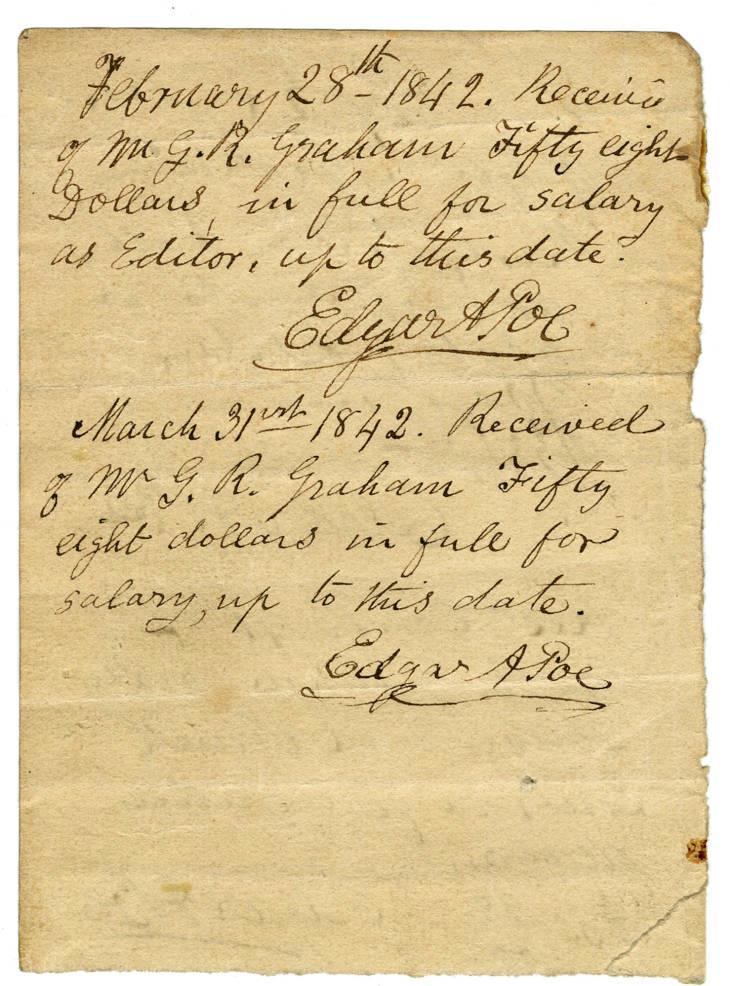 February 28th 1842. Received
of Mr G. R. Graham Fifty eight
Dollars, in full for salary
as Editor, up to this date.
Edgar A Poe
March 31rst 1842. Received
of Mr G. R. Graham Fifty
eight dollars in full for
salary, up to this date.
Edgar A Poe